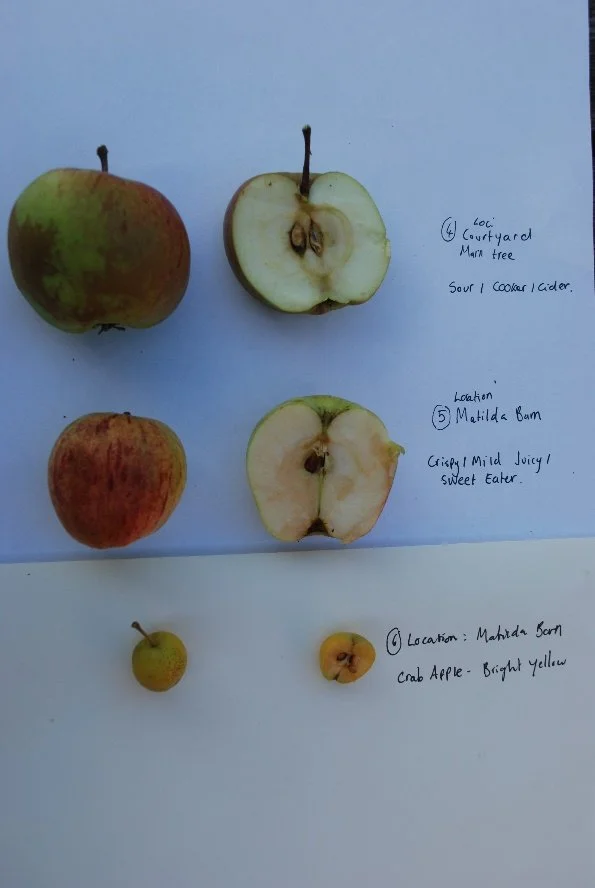 ④ Loci
Courtyard
Main tree
Sour / Cooker / Cider.
Location
⑤ Matilda Barn
Crispy / Mild Juicy /
Sweet Eater.
⑥ Location : Matilda Barn
Crab Apple - Bright Yellow